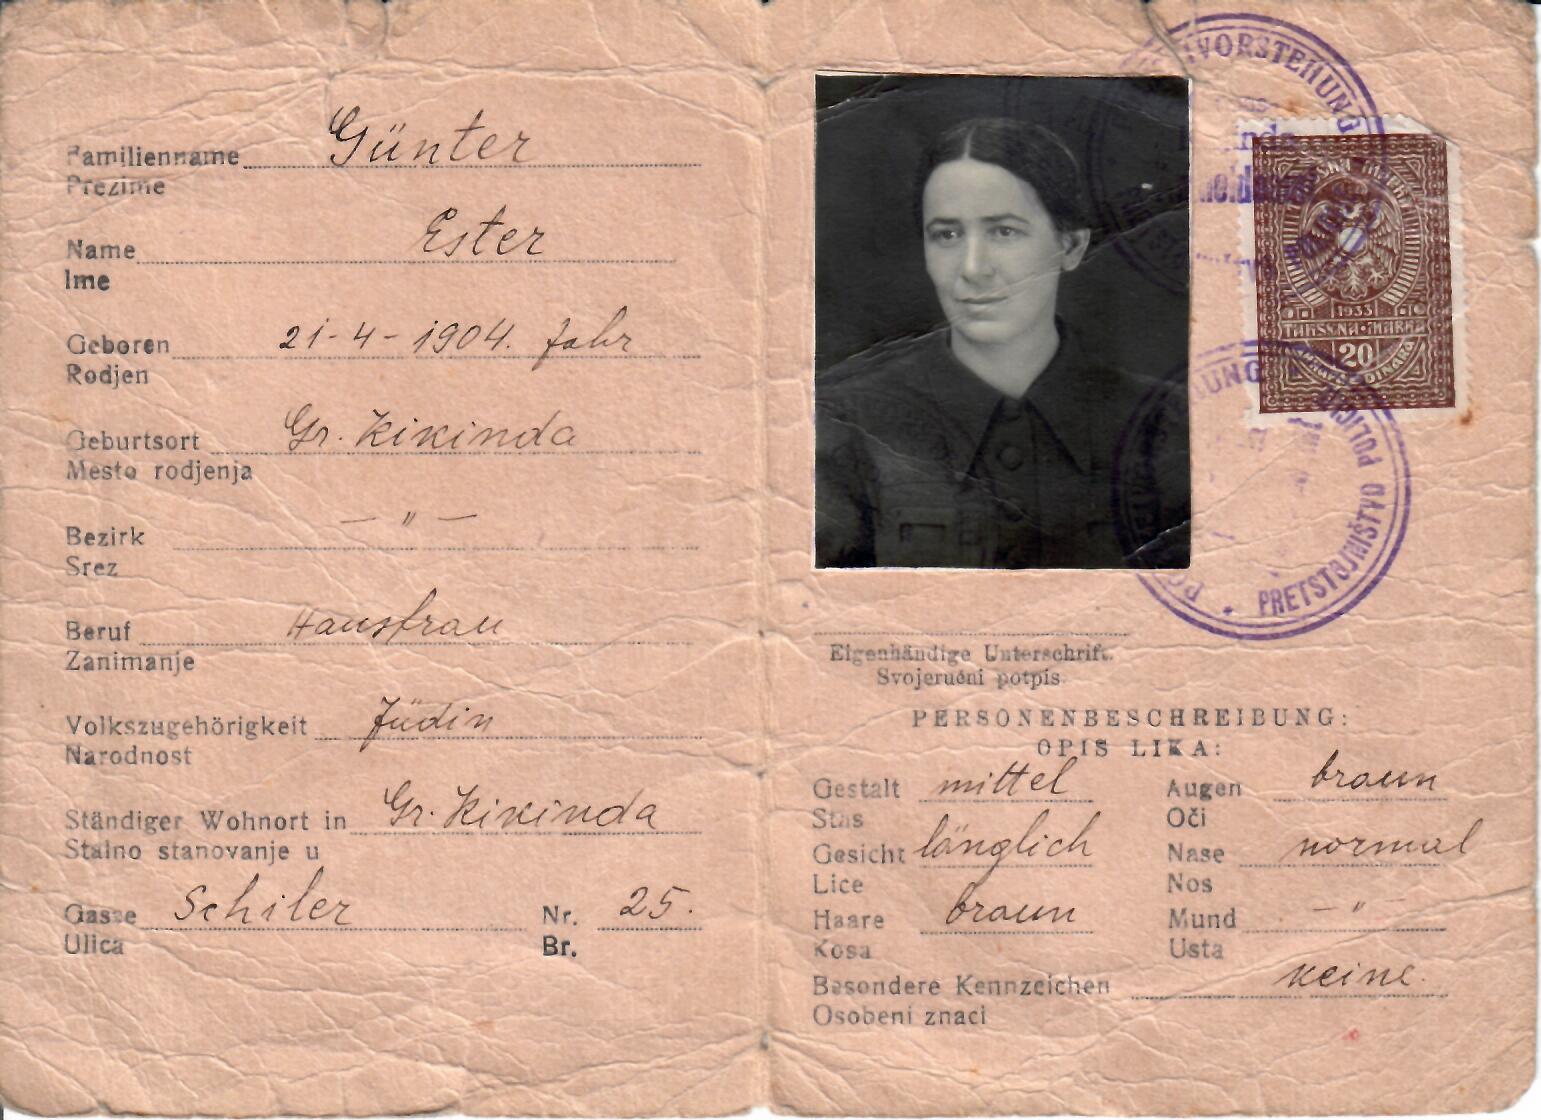 Familienname Günter
Prezime
Name Ester
Ime
Geboren 21-4-1904. Jahr
Rodjen
Geburtsort Gr. Kikinda
Mesto rodjenja
Bezirk — " —
Srez
Beruf Hausfrau
Zanimanje
Volkszugehörigkeit Jüdin
Narodnost
Ständiger Wohnort in Gr. Kikinda
Stalno stanovanje u
Gasse Schiler Nr. 25.
Ulica Br.
VORSTEHUNG
1933
TAKSENA MARKA
20
PRETSTOJNIŠTVO POLICIJE
Eigenhändige Unterschrift.
Svojeručni potpis.
PERSONENBESCHREIBUNG:
OPIS LIKA:
Gestalt mittel Augen braun
Stas Oči
Gesicht länglich Nase normal
Lice Nos
Haare braun Mund — " —
Kosa Usta
Besondere Kennzeichen keine.
Osobeni znaci